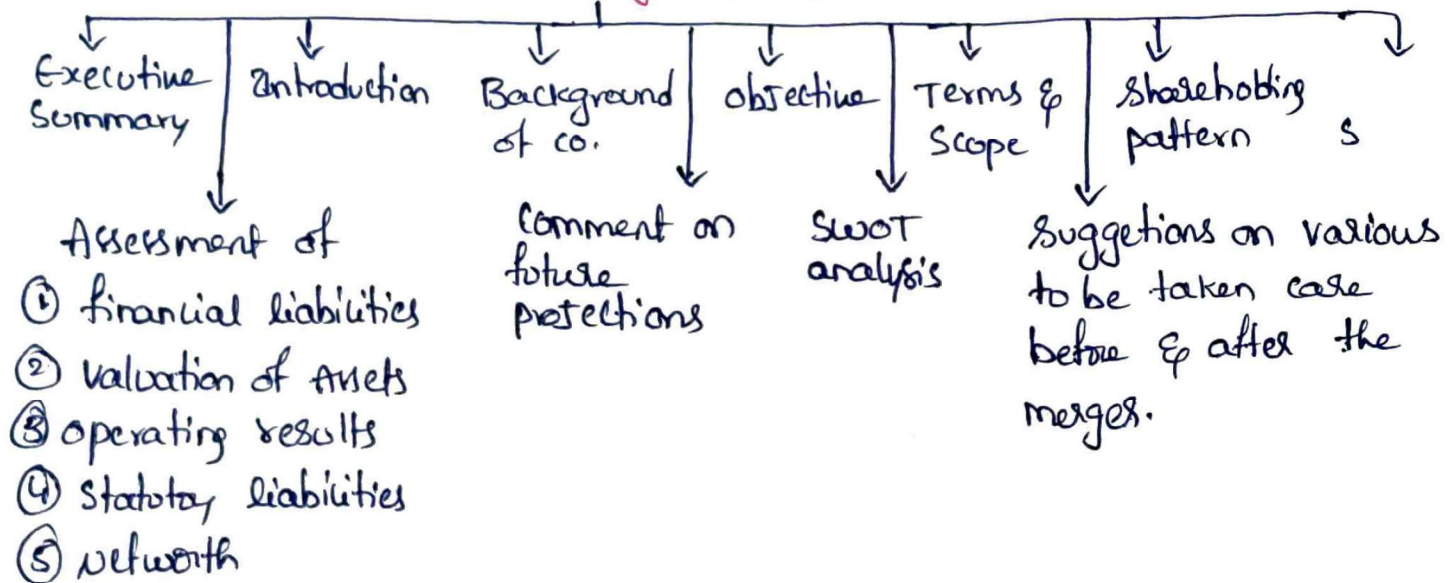 Executive
Summary
Introduction
Background
of co.
Objective
Terms &
Scope
Shareholding
pattern
S
Assessment of
① financial liabilities
② valuation of Assets
③ operating results
④ Statutoy liabilities
⑤ Networth
Comment on
future
projections
SWOT
analysis
Suggetions on various
to be taken care
before & after the
merger.